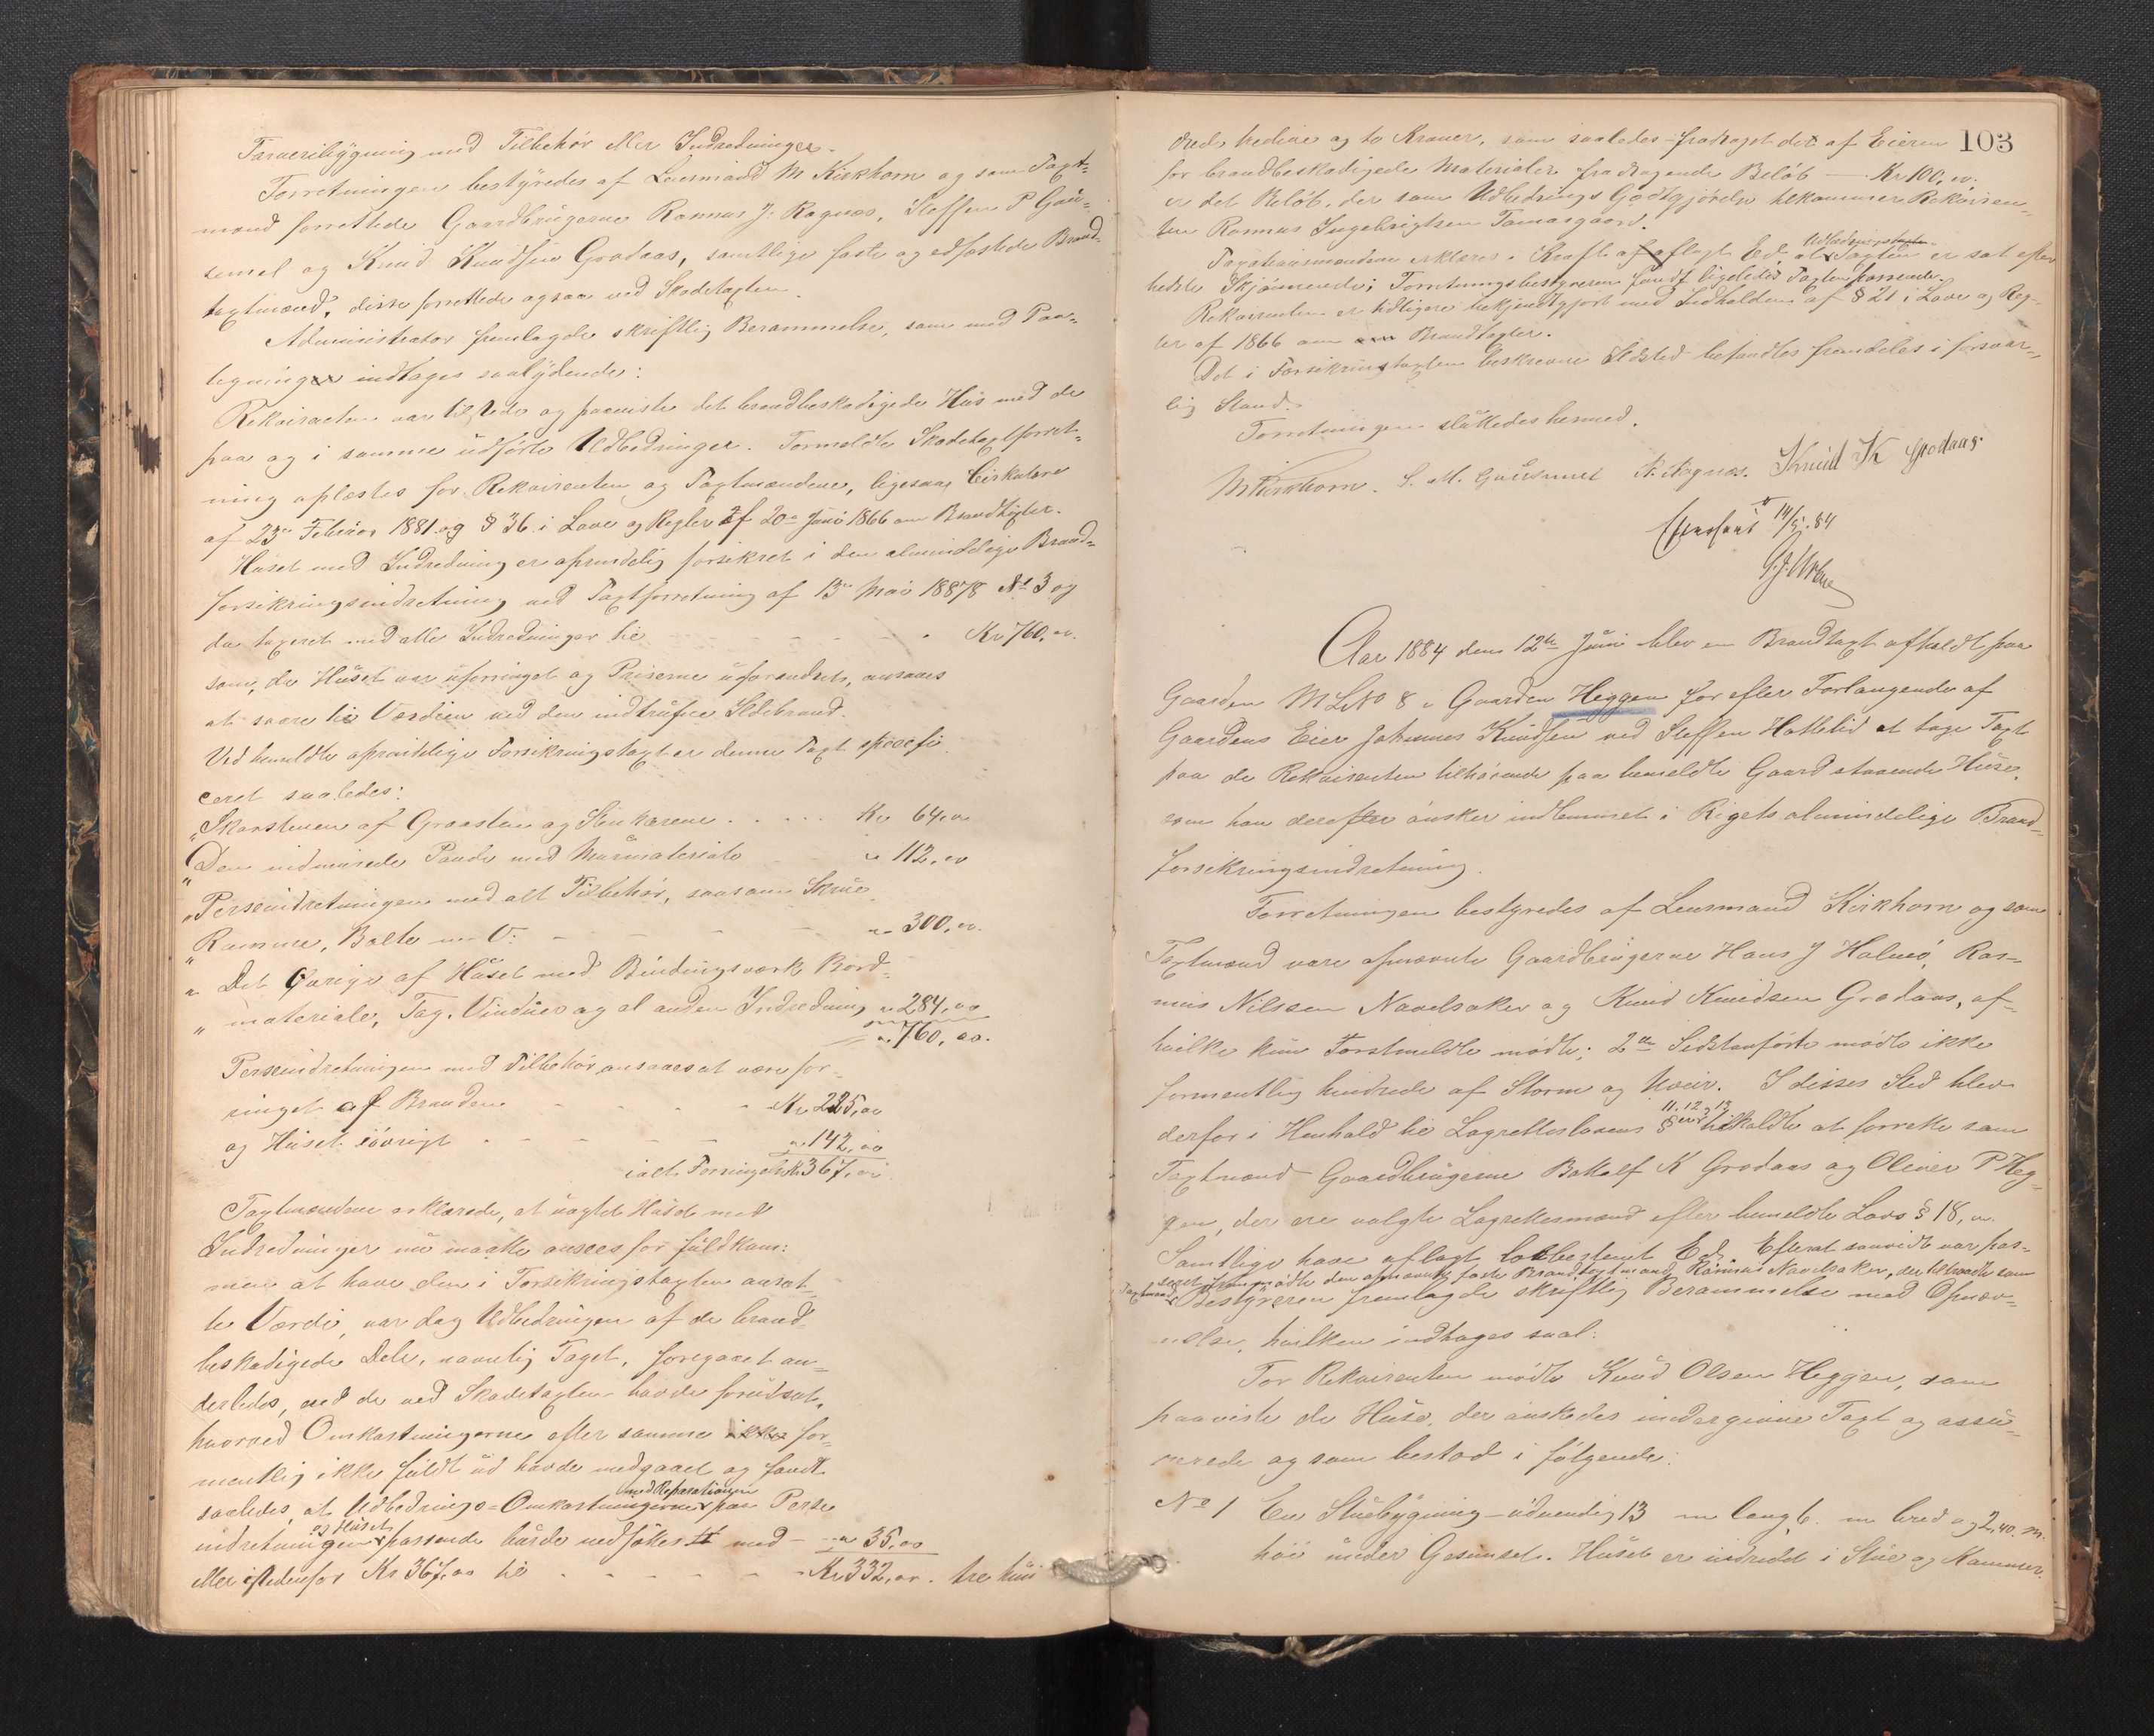 Farveribygning med Tilbehør eller Indredninger.
Forretningen bestyredes af Lensmand M Kirkhorn og som Taxt-
mænd forrettede Gaardbrugerne Rasmus J. Ragnæs, Steffen P Gau-
semel og Knud Knudsen Grodaas, samtlige faste og edfæstede Brand-
taxtmænd, disse forrettede ogsaa ved Skadetaxten.
Administrator fremlagde skriftlig Berammelse, som med Paa-
tegning indtages saalydende:
Rekvirenten var tilstede og paaviste det brandbeskadigede Hus med de
paa og i samme udførte Udbedringer. Formeldte Skadetaxtforret-
ning oplæstes for Rekvirenten og Taxtmændene, ligesaa Cirkulære
af 23de Februar 1881 og § 36 i Love og Regler af 20de Juni 1866 om Brandtaxter.
Huset med Indredning er oprindelig forsikret i den almindelige Brand-
forsikringsindretning ved Taxtforretning af 13de Mai 18878 No 3 og
da taxeret med alle Indredninger til - - - - Kr 760,00.
som, da Huset var uforringet og Priserne uforandret, ansaaes
at være til Værdien ved den indtrufne Ildebrand.
Ved bemeldte oprindelige Forsikringstaxt er denne Taxt specifi
ceret saaledes:
"Skorstenen af Graasten og Stenkarene . . . . . Kr 64,00
"Den indmurede Pande med Murmateriale " 112,00
"Perseindretningen med alt Tilbehør, saasom Skrue,
" Ramme, Bolte m V. - - - - " 300,00.
" Det Øvrige af Huset med Bindingsværk Bord-
" materiale, Tag, Vinduer og al anden Indredning " 284,00
" 760,00.
Perseindretningen med Tilbehør ansaaes at være for-
ringet af Branden - - - - Kr 225,00
og Huset iøvrigt - - - - - " 142,00
ialt Forringelse Kr 367,00
Taxtmændene erklærede, at uagtet Huset med
Indredninger nu maatte ansees for fuldkom:
men at have den i Forsikringstaxten ansat-
te Værdi, var dog Udbedringen af de brand-
beskadigede Dele, navnlig Taget, foregaaet an-
derledes, end de ved Skadetaxten havde forudsat,
hvorved Omkostningerne efter samme ikke for-
mentlig ikke fuldt ud havde medgaaet og fandt
med Reparationen
saaledes, at Udbedrings-Omkostningerne paa Perse
og Huset
indretningen passende burde nedsættes med - " 35,00
eller istedenfor Kr 367,00 til - - - - - Kr 332,00. tre hun
103
drede tredive og to Kroner, som saaledes fradraget det af Eieren
for brandbeskadigede Materialer fradragende Beløb — Kr 100,00.
er det Beløb, der som Udbedrings Godtgjørelse tilkommer Rekviren-
ten Rasmus Ingebrigtsen Tomasgaard.
Udbedringstaxten
Taxationsmændene erklærer i Kraft af aflagt Ed, at Taxten er sat efter
bedste Skjønnende; Forretningsbestyreren fandt ligeledes Taxten passende.
Rekvirenten er tidligere bekjendtgjort med Indholdet af § 21 i Love og Reg-
ler af 1866 om Brandtaxter.
Det i Forsikringstaxten beskrevne Ildsted befandtes fremdeles i forsvar-
lig Stand.
Forretningen sluttedes hermed.
M Kirkhorn. S. M. Gausemel R. Ragnæs. Knud K Grodaas.
14/5.84
Aar 1884 den 12te Juni blev en Brandtaxt afholdt paa
Gaarden M L No 8 i Gaarden Heggen for efter Forlangende af
Gaardens Eier Johannes Knudsen ved Steffen Hattelid at tage Taxt
paa de Rekvirenten tilhørende paa bemeldte Gaard staaende Huse,
som han derefter ønsker indlemmet i Rigets almindelige Brand-
forsikringsindretning.
Forretningen bestyredes af Lensmand Kirkhorn og som
Taxtmænd vare opnævnte Gaardbrugerne Hans J Holmø, Ras-
mus Nilssen Navelsaker og Knud Knudsen Grodaas, af-
hvilke kun Førstmeldte mødte; 2de Sidstanførte mødte ikke
formentlig hindrede af Storm og Uveir. I disses Sted blev
11. 12 og 13
derfor i Henhold til Lagrettelovens §er tilkaldte at forrette som
Taxtmænd Gaardbrugerne Botolf K Grodaas og Oliver P Heg-
gen, der ere valgte Lagrettesmænd efter bemeldte Lovs § 18,
Samtlige have aflagt lovbestemt Ed. Efterat saavidt var pas-
seret fremmødte den opnævnte faste Brandtaxtmand Rasmus Navelsaker, der tiltraadte som
Taxtmand
Bestyreren fremlagde skriftlig Berammelse med Opnæv-
nelse, hvilken indtages saal:
For Rekvirenten mødte Knud Olsen Heggen, som
paaviste de Huse, der ønskedes undergivne Taxt og assu-
rerede og som bestod i følgende:
No 1 En Stuebygning – udvendig 13 m lang, 6. m bred og 2,40. m.
høi under Gesimset. Huset er indredet i Stue og Kammer.